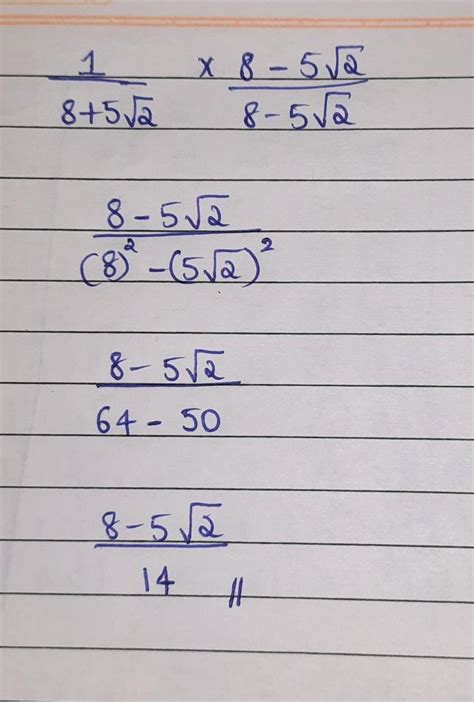 1/(8+5√2) × (8-5√2)/(8-5√2)
(8-5√2)/((8)²-(5√2)²)
(8-5√2)/(64-50)
(8-5√2)/14 //